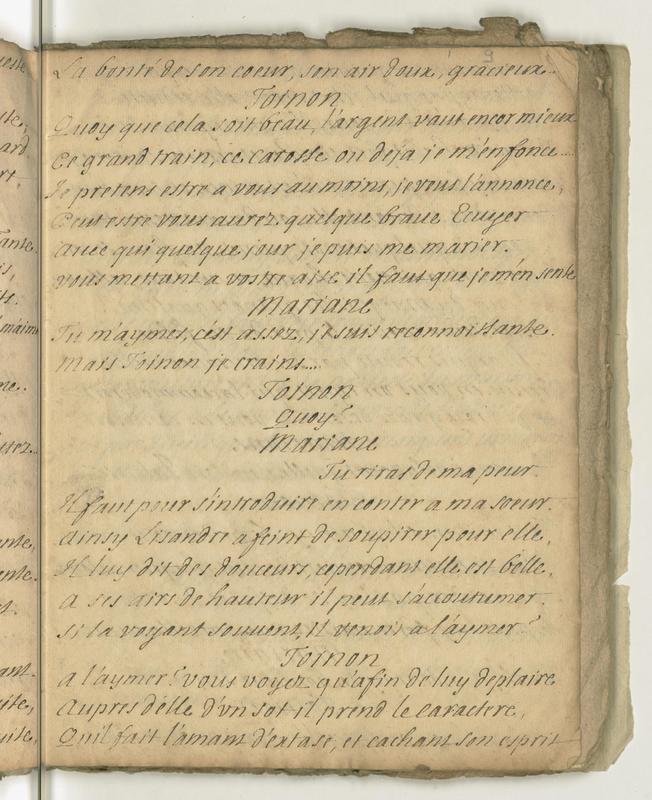 La bonté de son coeur, son air doux, gracieux...
Toinon
Quoy que cela soit beau, l'argent vaut encor mieux
Ce grand train, ce carosse ou deja je m'enfonce....
Je pretens estre a vous au moins, je vous l'annonce,
Peut estre vous aurez quelque braue Ecuyer
Auec qui quelque jour je puis me marier.
Vous mettant a vostre aise il faut que je m'en sente
Mariane
Tu m'aymes, c'est assez, je suis reconnoissante.
Mais Toinon je crains....
Toinon
Quoy?
Mariane
Tu riras de ma peur.
Il faut pour s'introduire en conter a ma soeur.
Ainsy Lisandre a feint de soupirer pour elle,
Il luy dit des douceurs, cependant elle est belle,
A ses airs de hauteur il peut s'accoutumer.
Si la voyant souvent, il venoit a l'aymer?
Toinon
A l'aymer? vous voyez qu'afin de luy deplaire
Aupres d'elle d'vn sot il prend le caractere,
Qu'il fait l'amant d'extase, et cachant son esprit